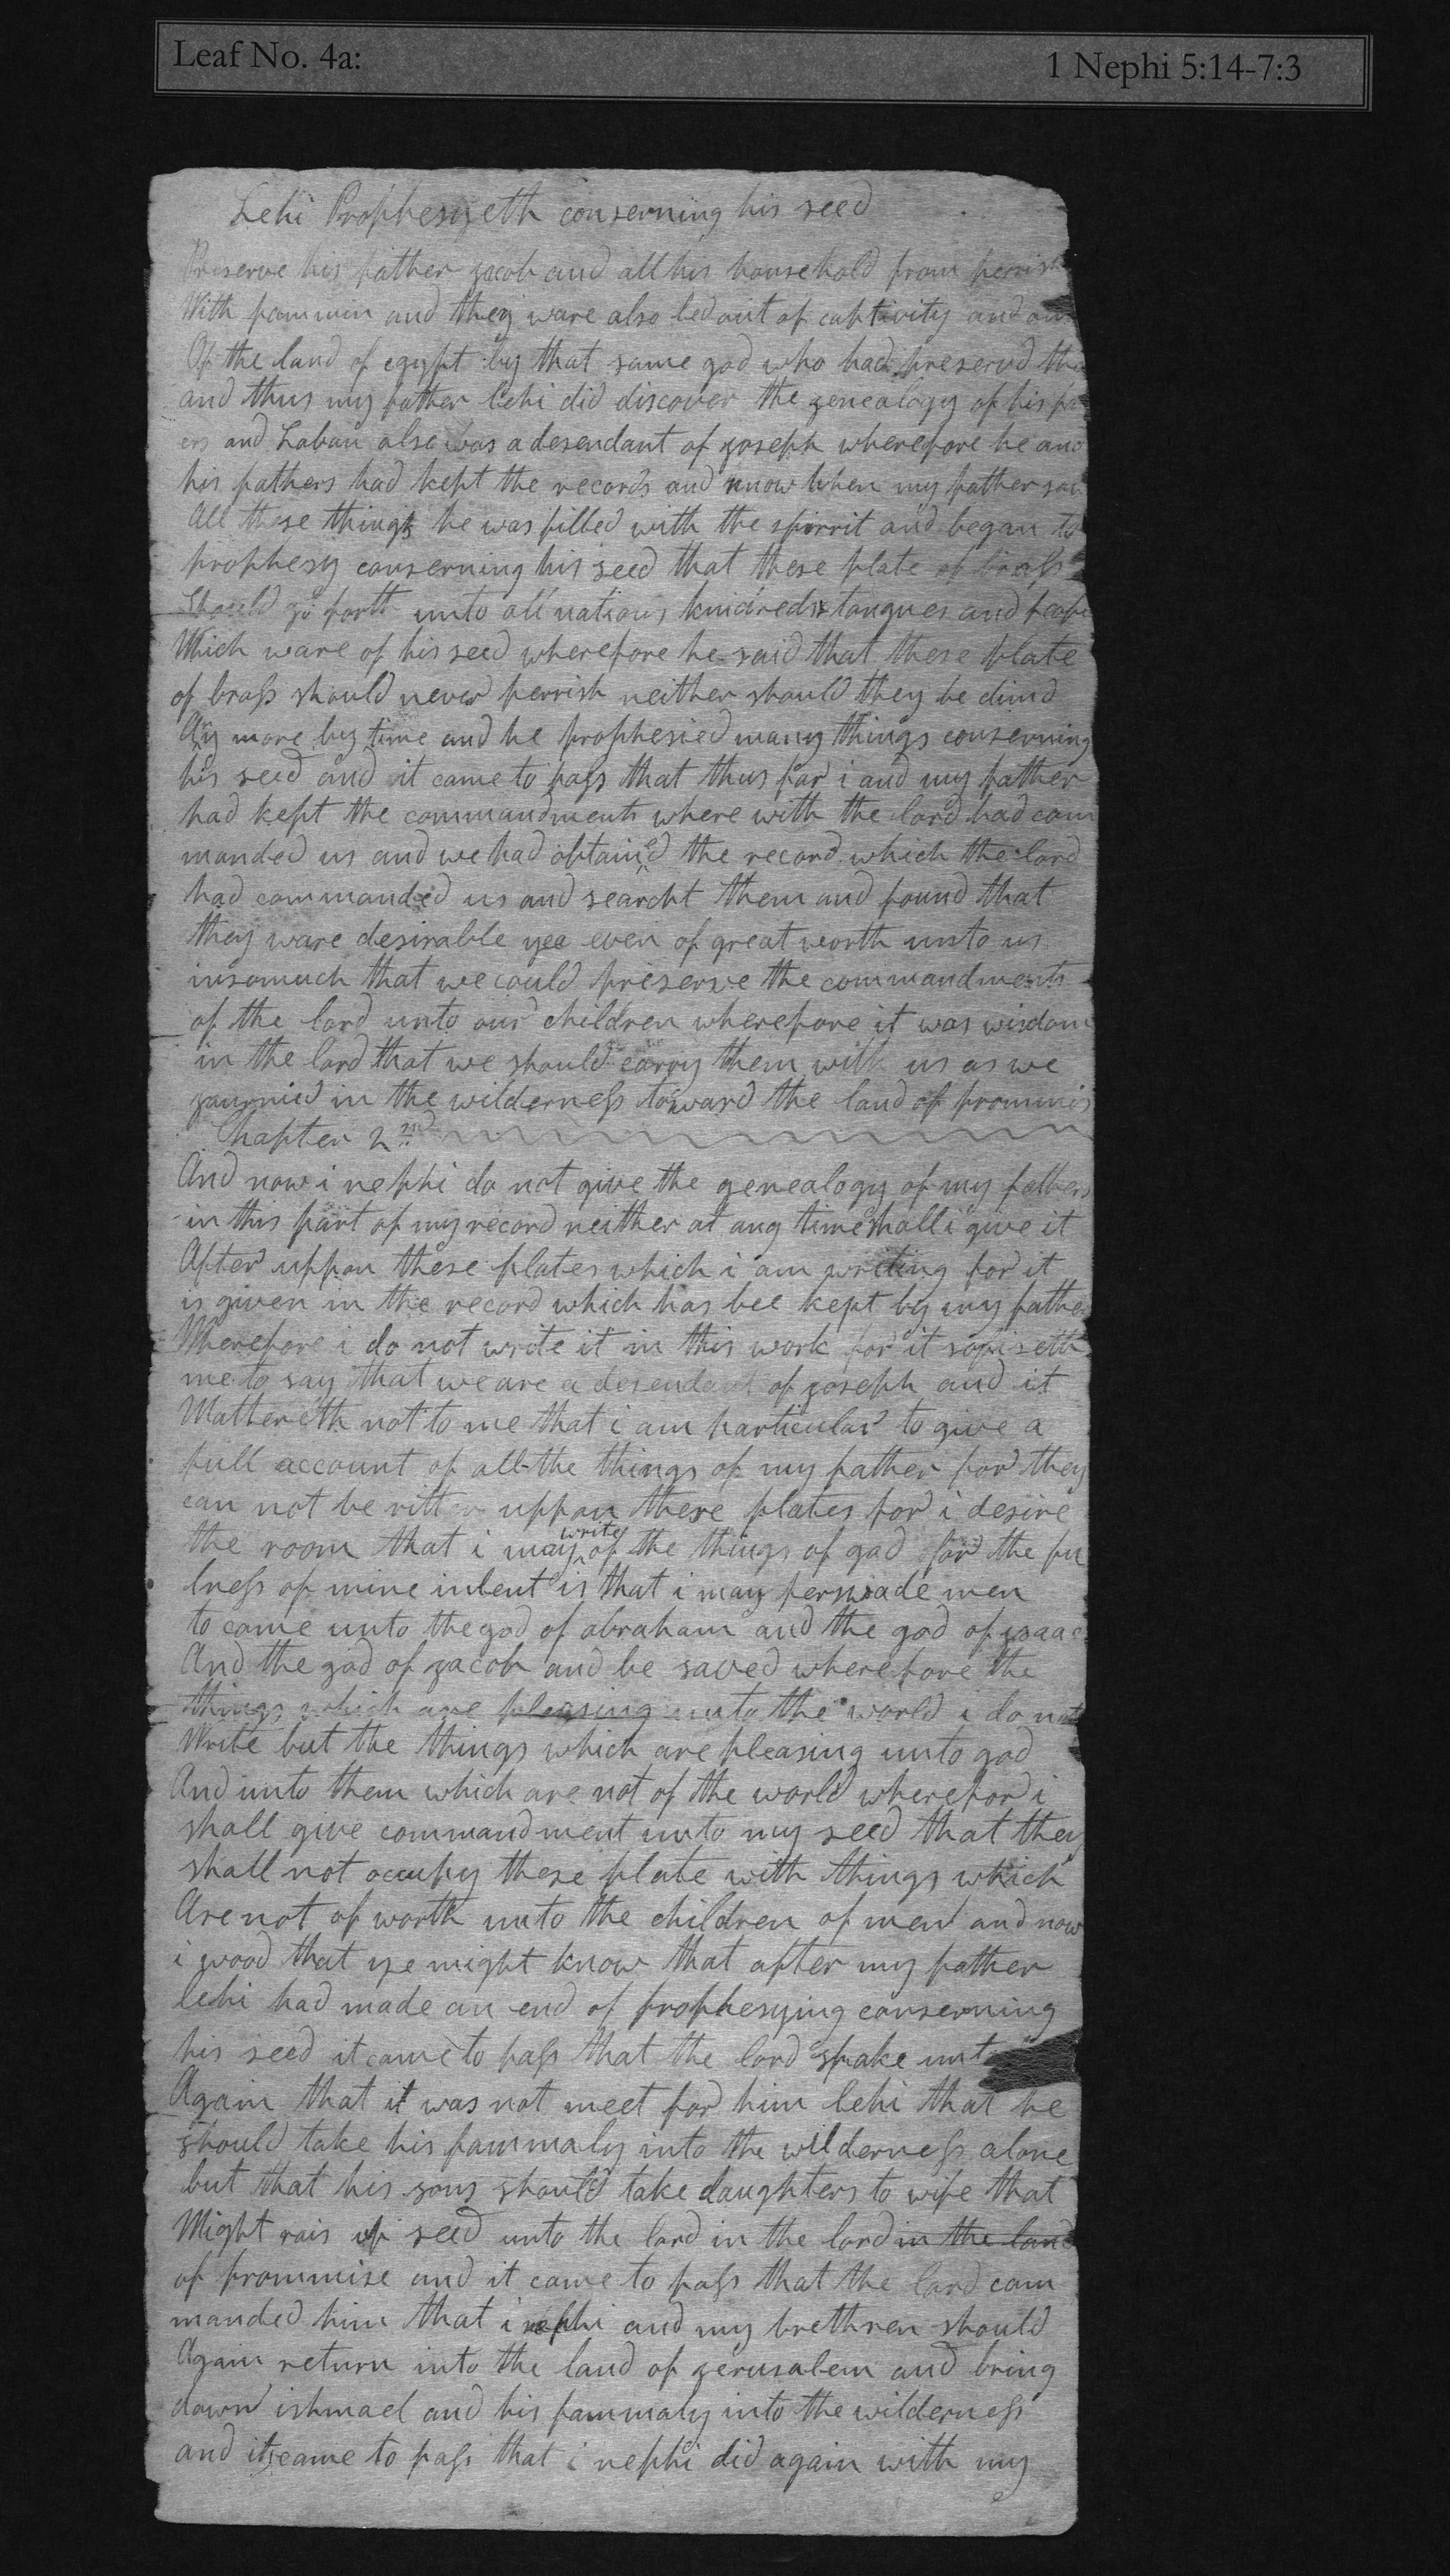 Leaf No. 4a: 1 Nephi 5:14-7:3
Lehi Prophesyeth conserning his seed
Preserve his father jacob and all his household from perrish
With fammin and they ware also led out of captivity and out
Of the land of egypt by that same god who had preservd the
and thus my father lehi did discover the genealogy of his fa
ers and Laban also was a desendant of joseph wherefore he and
his fathers had kept the records and now when my father saw
All these things he was filled with the spirrit and began to
prophesy conserning his seed that these plate of brass
Should go forth unto all nations kindreds tongues and peope
Which ware of his seed wherefore he said that these plate
of brass should never perrish neither should they be dimd
Any more by time and he prophesied many things conserning
his seed and it came to pass that thus far i and my father
had kept the commandments where with the lord had com
manded us and we had obtained the record which the lord
had commanded us and searcht them and found that
they ware desirable yee even of great worth unto us
insomuch that we could preserve the commandments
of the lord unto our children wherefore it was wisdom
in the lord that we should carry them with us as we
journied in the wilderness toward the land of prommis
Chapter 2nd
And now i nephi do not give the genealogy of my fathers
in this part of my record neither at any time shall i give it
After uppon these plates which i am writing for it
is given in the record which has bee kept by my fathe
Wherefore i do not write it in this work for it sofiseth
me to say that we are a desendant of joseph and it
Mattereth not to me that i am particular to give a
full account of all the things of my father for they
can not be ritten uppon these plates for i desire
the room that i may write of the things of god for the fu
lness of mine intent is that i may perswade men
to come unto the god of abraham and the god of isaac
And the god of jacob and be saved wherefore the
things which are pleasing unto the world i do not
Write but the things which are pleasing unto god
And unto them which are not of the world wherefor i
shall give commandment unto my seed that they
shall not occupy these plate with things which
Are not of worth unto the children of men and now
i wood that ye might know that after my father
lehi had made an end of prophesying conserning
his seed it came to pass that the lord spake unto
Again that it was not meet for him lehi that he
should take his fammaly into the wilderness alone
but that his sons should take daughters to wife that
Might rais up seed unto the lord in the lord in the land
of prommise and it came to pass that the lord com
manded him that i nephi and my brethren should
Again return into the land of jerusalem and bring
down ishmael and his fammaly into the wilderness
and it came to pass that i nephi did again with my